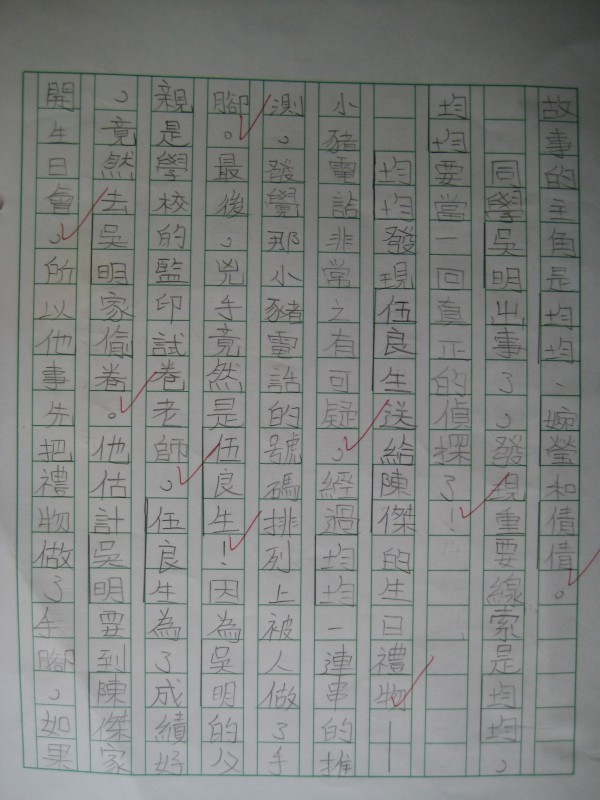 故事的主角是均均、婉瑩和倩倩。
同學吳明出事了，發現重要線索是均均，
均均要當一回真正的偵探了！
均均發現伍良生送給陳傑的生日禮物—
小豬電話非常之有可疑，經過均均一連串的推
測，發覺那小豬電話的號碼排列上被人做了手
腳。最後，兇手竟然是伍良生！因為吳明的父
親是學校的監印試卷老師，伍良生為了成績好
，竟然去吳明家偷卷。他估計吳明要到陳傑家
開生日會，所以他事先把禮物做了手腳，如果